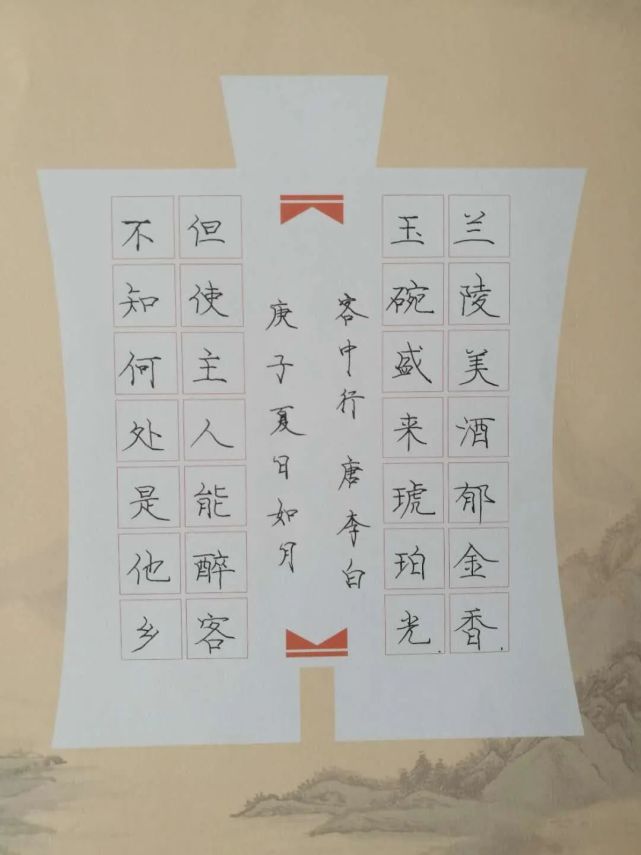 兰陵美酒郁金香.
玉碗盛来琥珀光.
客中行 唐李白
庚子夏日如月
但使主人能醉客
不知何处是他乡